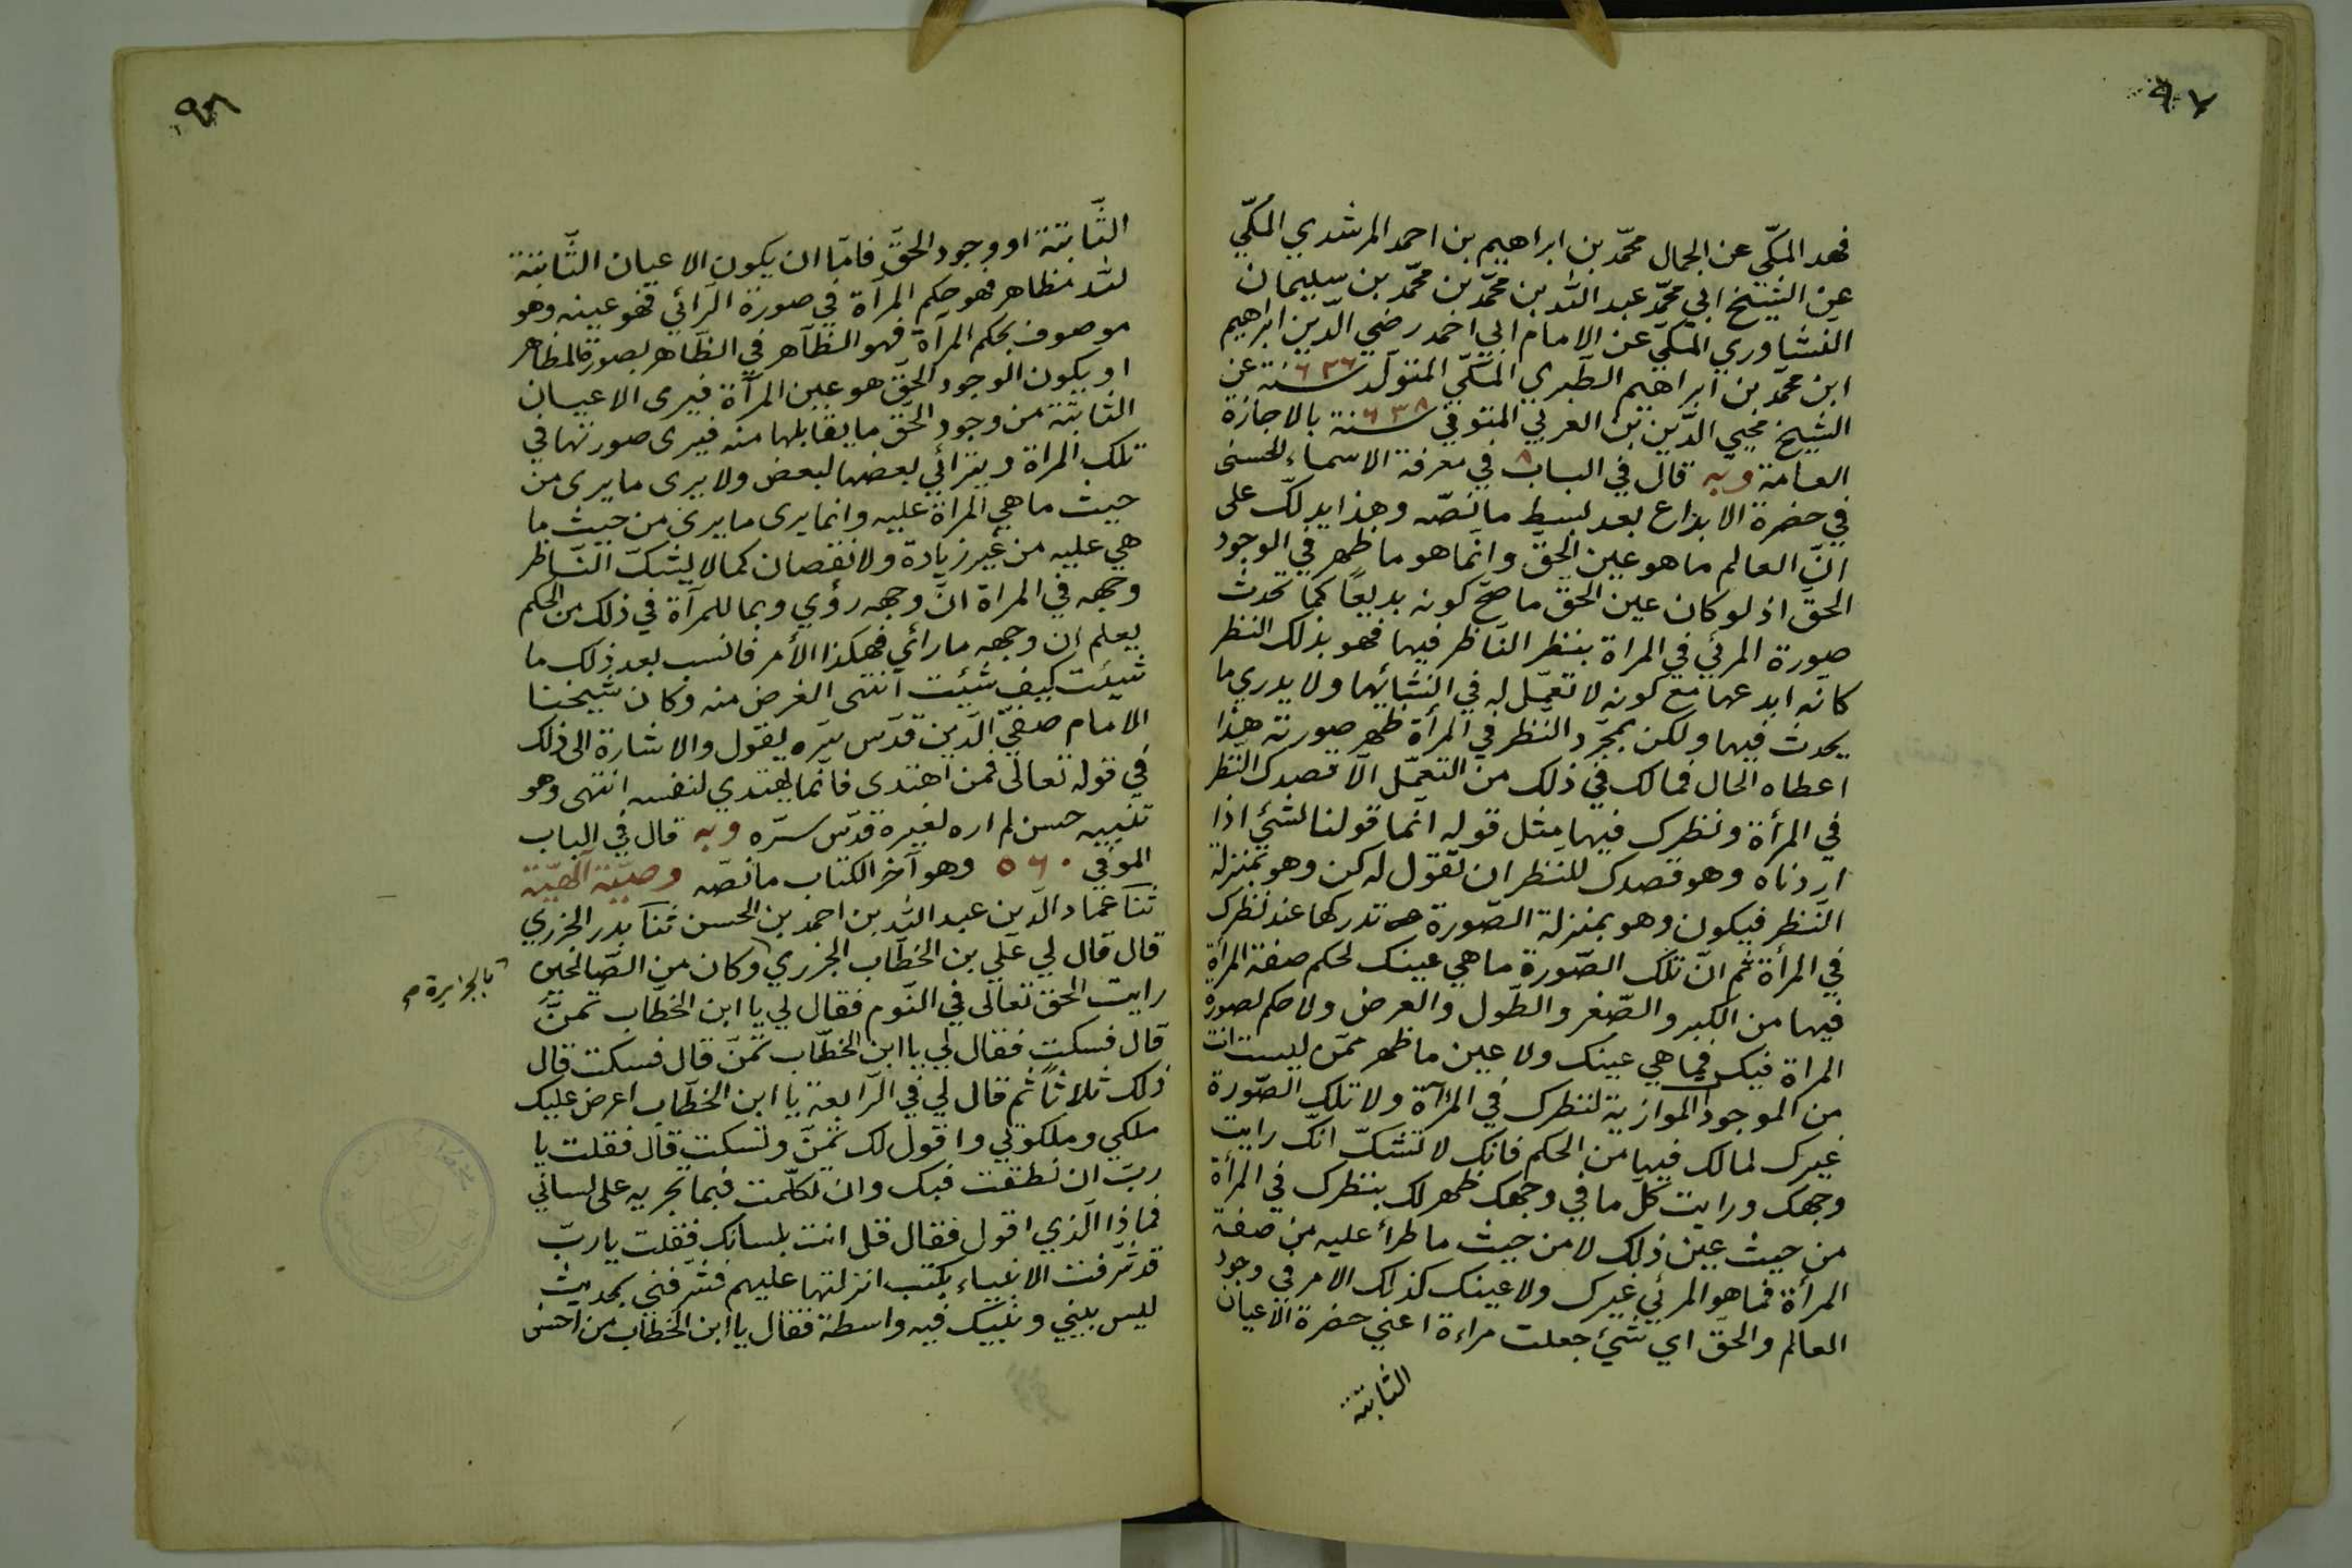 ٩٧
فهد المكّي عن الجمال محمّد بن ابراهيم بن احمد المرشدي المكّي
عن الشيخ ابي محمّد عبد الله بن محمّد بن محمّد بن سليمان
النّشاوري المكّي عن الامام ابي احمد رضي الدّين ابراهيم
ابن محمّد بن ابراهيم الطّبري المكّي المتولّد سنة ٦٣٦ عن
الشيخ محيي الدّين بن العربي المتوفي سنة ٦٣٨ بالاجازة
العامة وبه قال في الباب ٨ في معرفة الاسماء الحسنى
في حضرة الابداع بعد بسط ما نصّه وهذا يدلّك على
انّ العالم ما هو عين الحقّ وانّما هو ما ظهر في الوجود
الحقّ اذ لو كان عين الحقّ ما صحّ كونه بديعًا كما تحدث
صورة المرئي في المراة بنظر النّاظر فيها فهو بذلك النظر
كانّه ابدعها مع كونه لا تعمّل له في انشائها ولا يدري ما
يحدث فيها ولكن بمجرّد النّظر في المرأة ظهر صورته هذا
اعطاه الحال فما لك في ذلك من التعمّل الّا قصدك النّظر
في المرأة ونظرك فيها مثل قوله انّما قولنا لشئ اذا
اردناه وهو قصدك للنظر ان نقول له كن وهو بمنزلة
النّظر فيكون وهو بمنزلة الصّورة تدركها عند نظرك
في المرأة ثم انّ تلك الصّورة ما هي عينك لحكم صفة المرأة
فيها من الكبر والصّغر والطّول والعرض ولا حكم لصورة
المراة فيك فما هي عينك ولا عين ما ظهر ممّن ليست انت
من الموجود الموازية لنظرك في المرآة ولا تلك الصّورة
غيرك لما لك فيها من الحكم فانك لا تشكّ انّك رايت
وجهك ورايت كلّ ما في وجهك ظهر لك بنظرك في المرأة
من حيث عين ذلك لا من حيث ما طرأ عليه من صفة
المرأة فما هو المرئي غيرك ولا عينك كذلك الامر في وجود
العالم والحقّ اي شئ جعلت مراءة اعني حضرة الاعيان
الثابتة
٩٨
الثّابتة او وجود الحقّ فامّا ان يكون الاعيان الثّابتة
لله مظاهر فهو حكم المرآة في صورة الرّائي فهو عينه وهو
موصوف بحكم المرآة فهو الظّاهر في الظّاهر بصورة المظاهر
او يكون الوجود الحقّ هو عين المرآة فيرى الاعيان
الثابتة من وجود الحقّ ما يقابلها منه فيرى صورتها في
تلك المراة ويترائي بعضها لبعض ولا يرى ما يرى من
حيث ما هي المرأة عليه وانما يرى ما يرى من حيث ما
هي عليه من غير زيادة ولا نقصان كما لا يشكّ النّاظر
وجهه في المراة انّ وجهه رؤي وبما للمرآة في ذلك من الحكم
يعلم ان وجهه ما رأي فهكذا الأمر فانسب بعد ذلك ما
شيئت كيف شيئت انتهى الغرض منه وكان شيخنا
الامام صفيّ الدّين قدّس سرّه يقول والاشارة الى ذلك
في قوله تعالى فمن اهتدى فانّما يهتدي لنفسه انتهى وهو
تنبيه حسن لم اره لغيره قدّس سرّه وبه قال في الباب
الموفي ٥٦٠ وهو آخر الكتاب ما نصّه وصيّة الٓهيّة
ثنا عماد الدّين عبد الله بن احمد بن الحسن ثنا بدر الخزري
قال قال لي علي بن الخطّاب الجزري وكان من الصّالحين
رايت الحقّ تعالى في النّوم فقال لي يا ابن الخطّاب تمنّ
قال فسكت فقال لي يا ابن الخطّاب تمنّ قال فسكت قال
ذلك ثلاثًا ثم قال لي في الرّابعة يا ابن الخطّاب اعرض عليك
ملكي وملكوتي واقول لك تمنّ وتسكت قال فقلت يا
ربّ ان نطقت فبك وان تكلّمت فبما تجريه على لساني
فما ذا الّذي اقول فقال قل انت بلسانك فقلت يا ربّ
قد شرّفت الانبياء بكتب انزلتها عليهم فشرّفني بحديث
ليس بيني وبينك فيه واسطة فقال يا ابن الخطاب من احسن